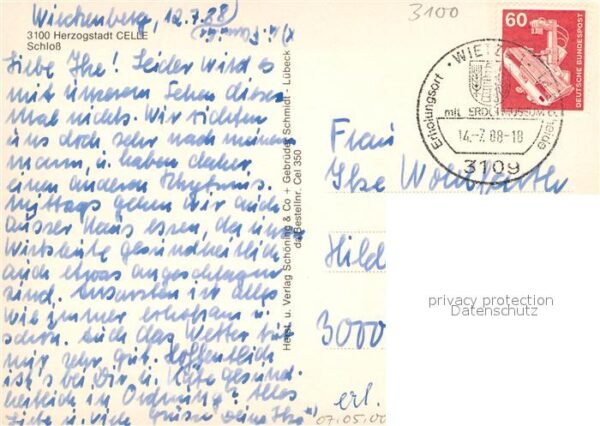 Wieckenberg, 12.7.88)
3100 Herzogstadt CELLE
Schloß
Liebe Ilse! Leider wird es
mit unserem Sehen dieses
mal nichts. Wir richten
uns doch sehr nach meinem
Mann, u. haben daher
einen anderen Rhythmus.
Mittags gehen wir auch
ausser Haus essen, da uns.
Wirtsleute gesundheitlich
auch etwas angeschlagen
sind. Ansonsten ist alles
wie immer erholsam u.
schön. Auch das Wetter
mir sehr gut. Hoffentlich
ist's bei Dir u. Käte gesund-
heitlich in Ordnung? Alles
Liebe u. viele Grüsse Deine
Herst. u. Verlag Schöning & Co + Gebrüder Schmidt - Lübeck
Bestellnr. Cel 350
3100
60
DEUTSCHE BUNDESPOST
Erholungsort · WIETZE
mit ERDÖLMUSEUM
14.-7.88-18
3109
Frau
Ilse
Hild
3000
erl.
07.05.00
privacy protection
Datenschutz